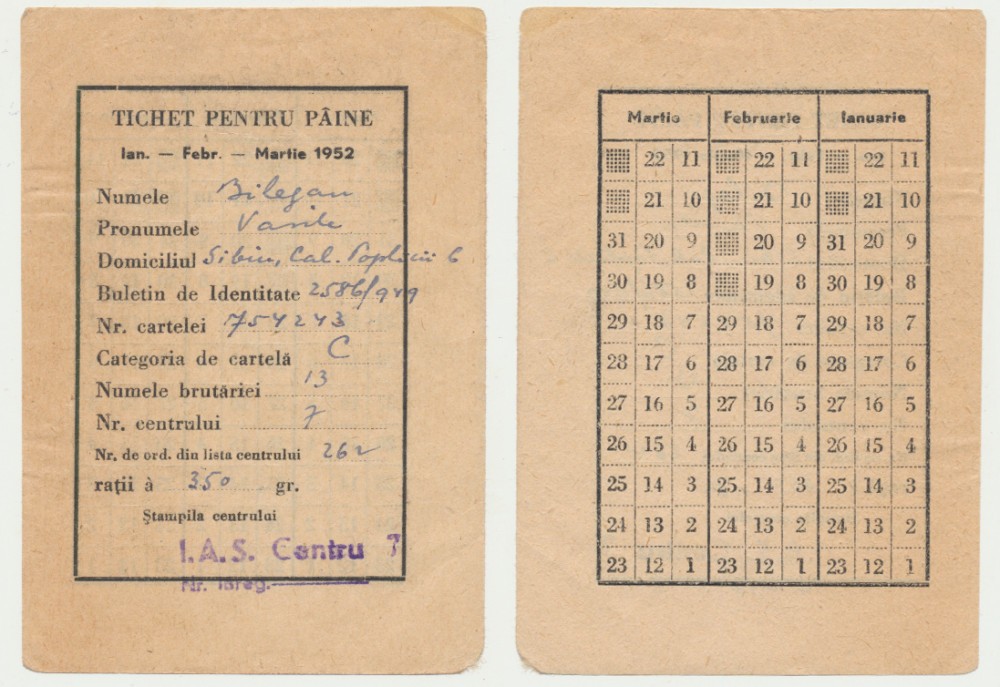 TICHET PENTRU PÂINE
Ian. — Febr. — Martie 1952
Numele Bilegan
Pronumele Vasile
Domiciliul Sibiu, Cal. Poplicii 6
Buletin de Identitate 2586/949
Nr. cartelei 754243
Categoria de cartelă C
Numele brutăriei 13
Nr. centrului 7
Nr. de ord. din lista centrului 262
rații à 350 gr.
Ștampila centrului
I.A.S. Centru 7
Nr. înreg.
Martie Februarie Ianuarie
22 11 22 11 22 11
21 10 21 10 21 10
31 20 9 20 9 31 20 9
30 19 8 19 8 30 19 8
29 18 7 29 18 7 29 18 7
28 17 6 28 17 6 28 17 6
27 16 5 27 16 5 27 16 5
26 15 4 26 15 4 26 15 4
25 14 3 25 14 3 25 14 3
24 13 2 24 13 2 24 13 2
23 12 1 23 12 1 23 12 1